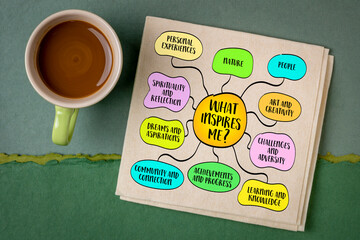 PERSONAL
EXPERIENCES
NATURE
PEOPLE
SPIRITUALITY
AND
REFLECTION
ART AND
CREATIVITY
WHAT
INSPIRES
ME?
DREAMS AND
ASPIRATIONS
CHALLENGES
AND
ADVERSITY
COMMUNITY AND
CONNECTION
ACHIEVEMENTS
AND PROGRESS
LEARNING AND
KNOWLEDGE